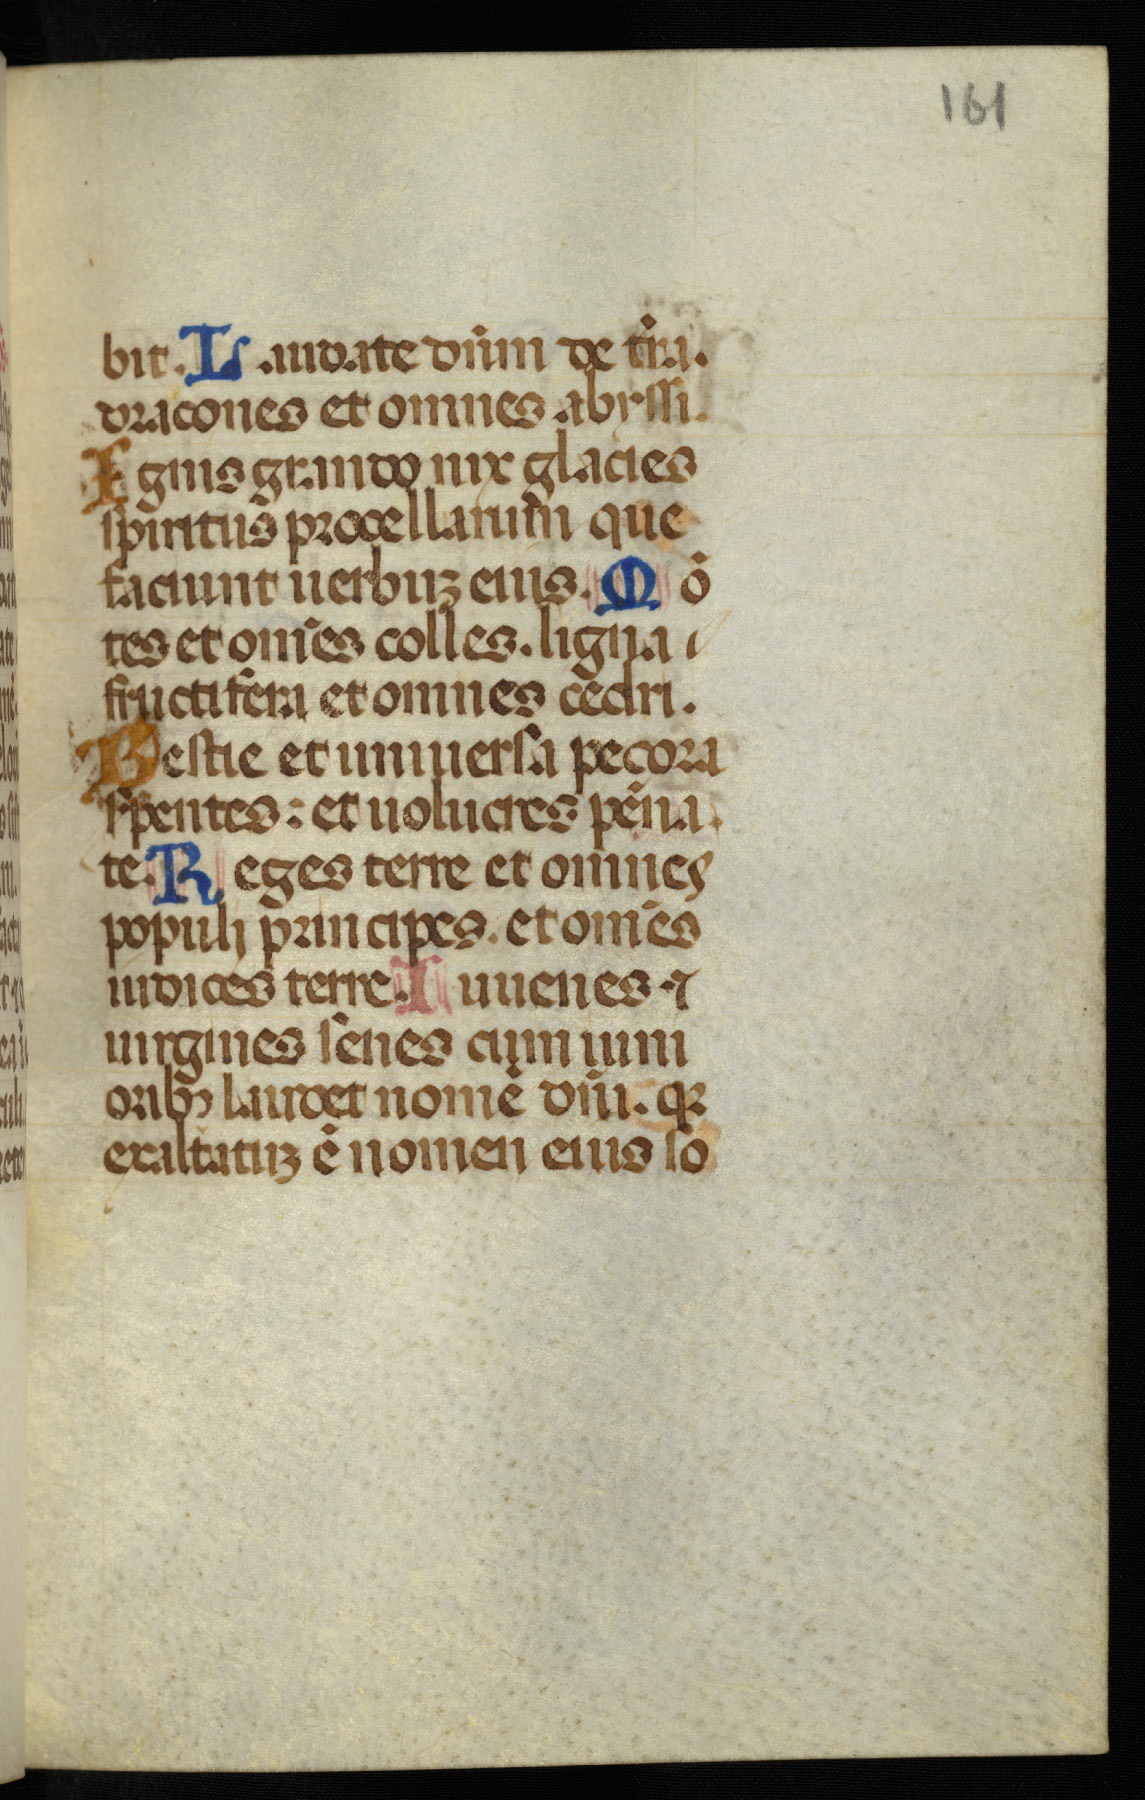 161
bit. Laudate dn̄m de tr̄a.
dracones et omnes abyssi.
Ignis grando nix glacies
spiritus procellarum que
faciunt uerbuꝫ eius. Mō
tes et om̄es colles. ligna
fructifera et omnes cedri.
Bestie et uniuersa pecora
s̄pentes: et uolucres pēna
te. Reges terre et omnes
populi principes. et om̄es
iudices terre. Iuuenes ⁊
uirgines senes cum iuni
oribꝰ laudet nomē dn̄i. qꝛ
exaltatuꝫ ē nomen eius so